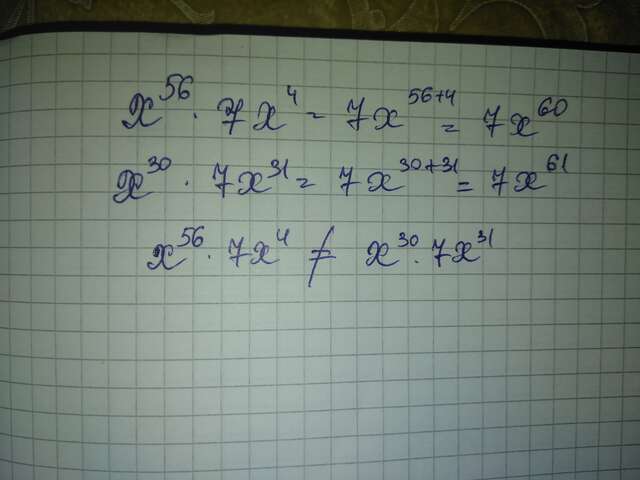 x^56 · 7x^4 = 7x^56+4 = 7x^60
x^30 · 7x^31 = 7x^30+31 = 7x^61
x^56 · 7x^4 ≠ x^30 · 7x^31